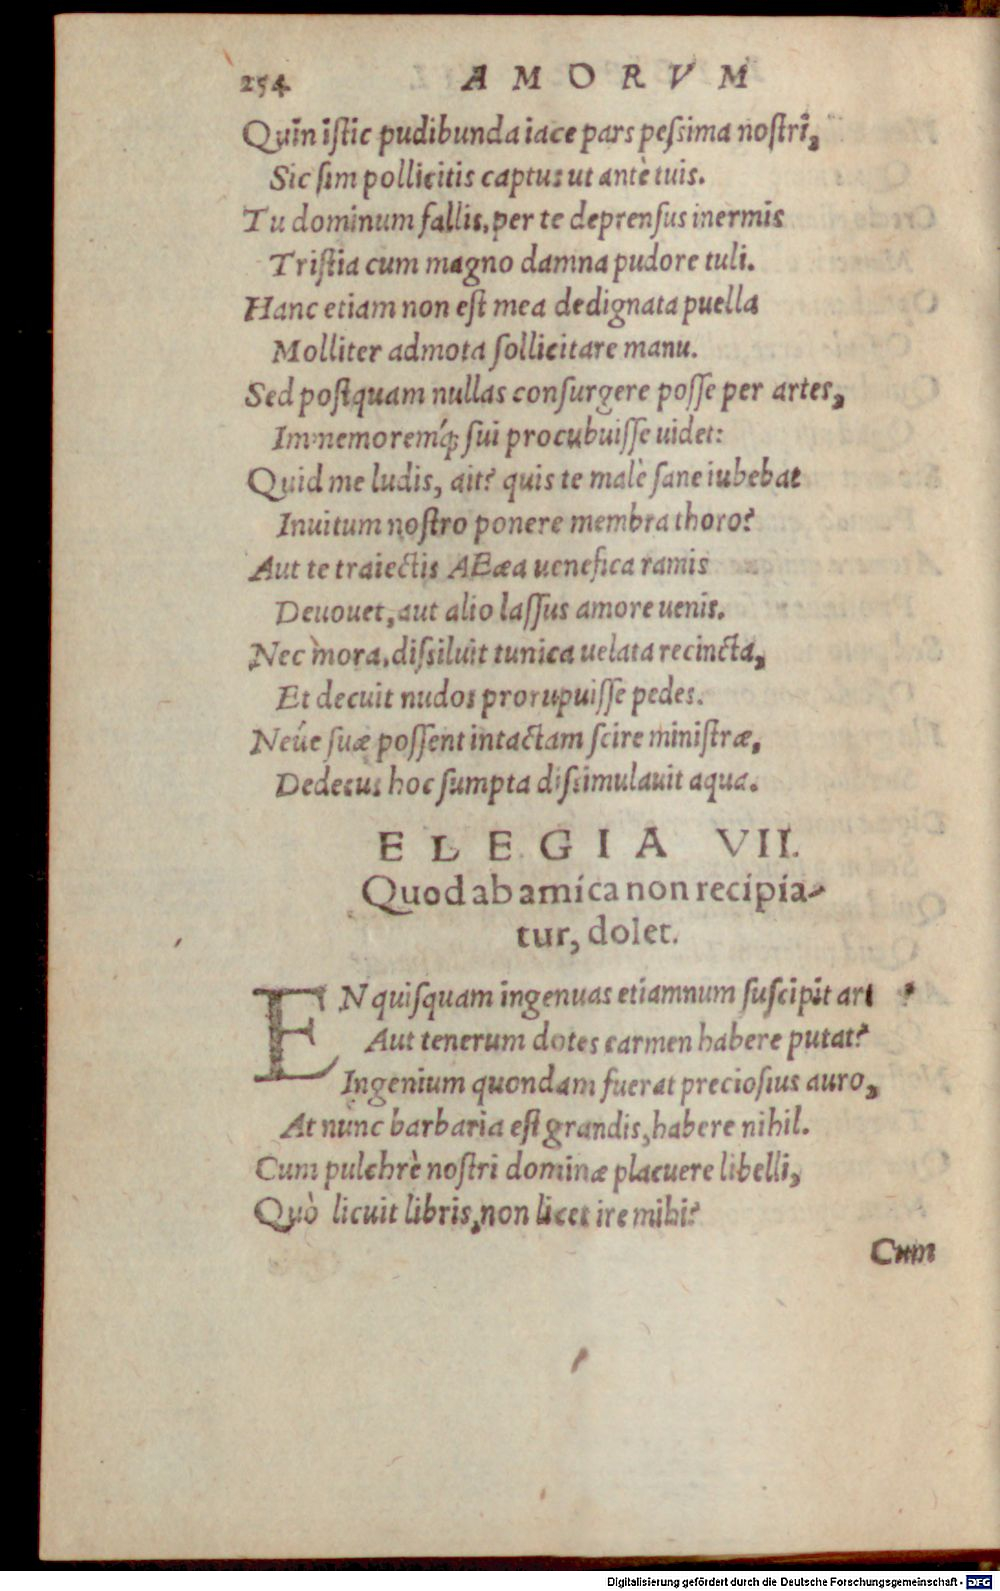 254 AMORVM
Quin istic pudibunda iace pars pessima nostri,
Sic sim pollicitis captus ut antè tuis.
Tu dominum fallis, per te deprensus inermis
Tristia cum magno damna pudore tuli.
Hanc etiam non est mea dedignata puella
Molliter admota sollicitare manu.
Sed postquam nullas consurgere posse per artes,
Immemoremq́; sui procubuisse uidet:
Quid me ludis, ait? quis te malè sane iubebat
Inuitum nostro ponere membra thoro?
Aut te traiectis AEæa uenefica ramis
Deuouet, aut alio lassus amore uenis.
Nec mora, dissiluit tunica uelata recincta,
Et decuit nudos prorupuisse pedes.
Neúe suæ possent intactam scire ministræ,
Dedecus hoc sumpta dissimulauit aqua.
ELEGIA VII.
Quod ab amica non recipia-
tur, dolet.
EN quisquam ingenuas etiamnum suscipit art
Aut tenerum dotes carmen habere putat?
Ingenium quondam fuerat preciosius auro,
At nunc barbaria est grandis, habere nihil.
Cum pulchrè nostri dominæ placuere libelli,
Quò licuit libris, non licet ire mihi?
Cum
Digitalisierung gefördert durch die Deutsche Forschungsgemeinschaft - DFG